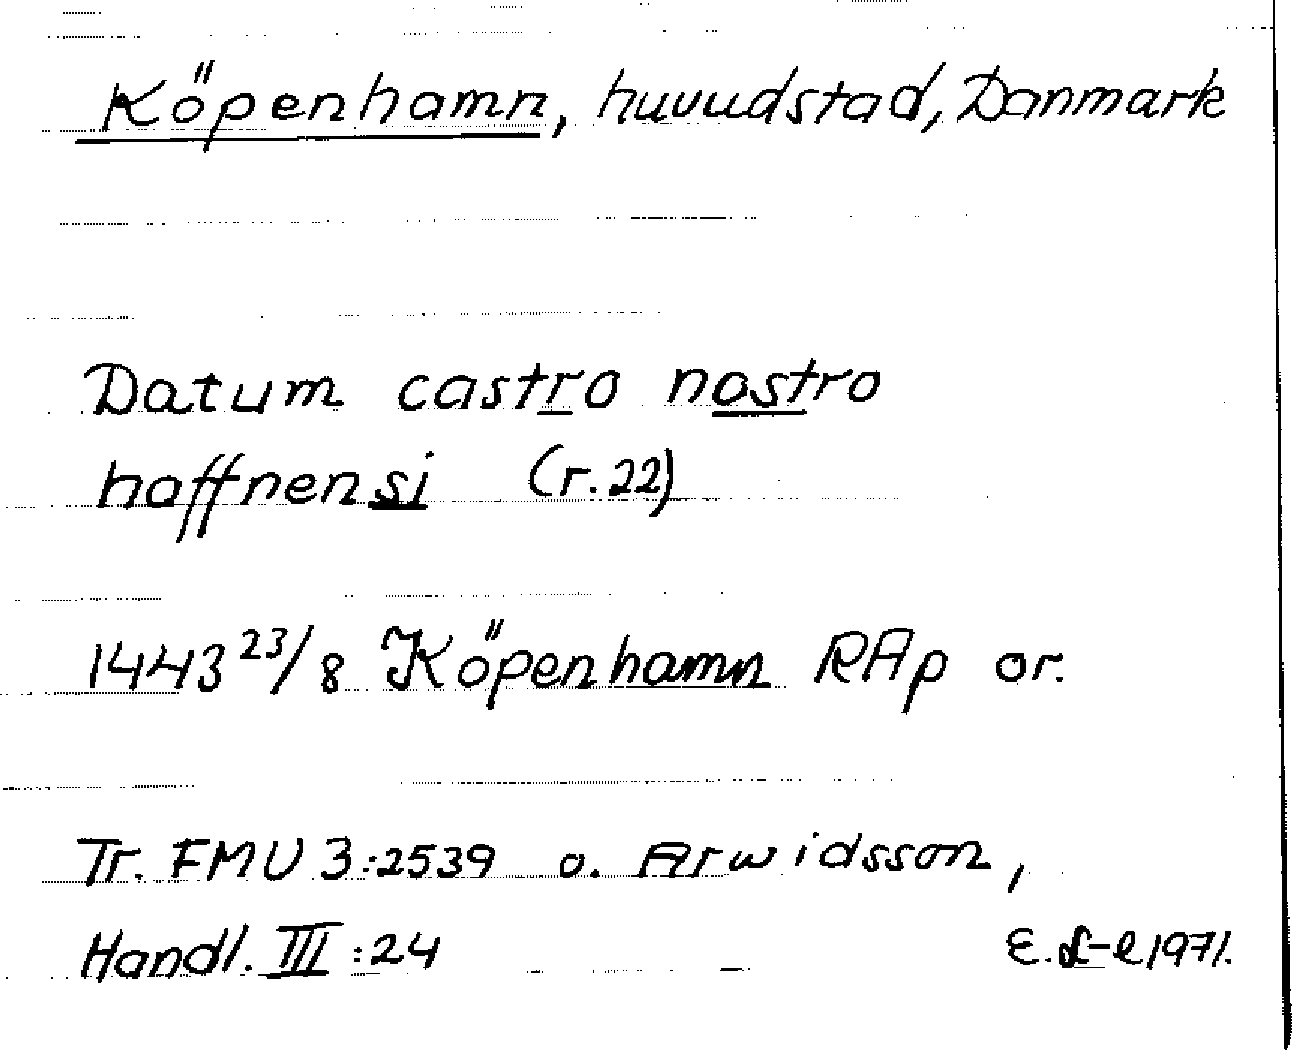 Köpenhamn, huvudstad, Danmark
Datum castro nostro
haffnensi (r. 22)
1443 23/8 Köpenhamn RAp or.
Tr. FMU 3:2539 o. Arwidsson,
Handl. III:24 E. L-l 1971.